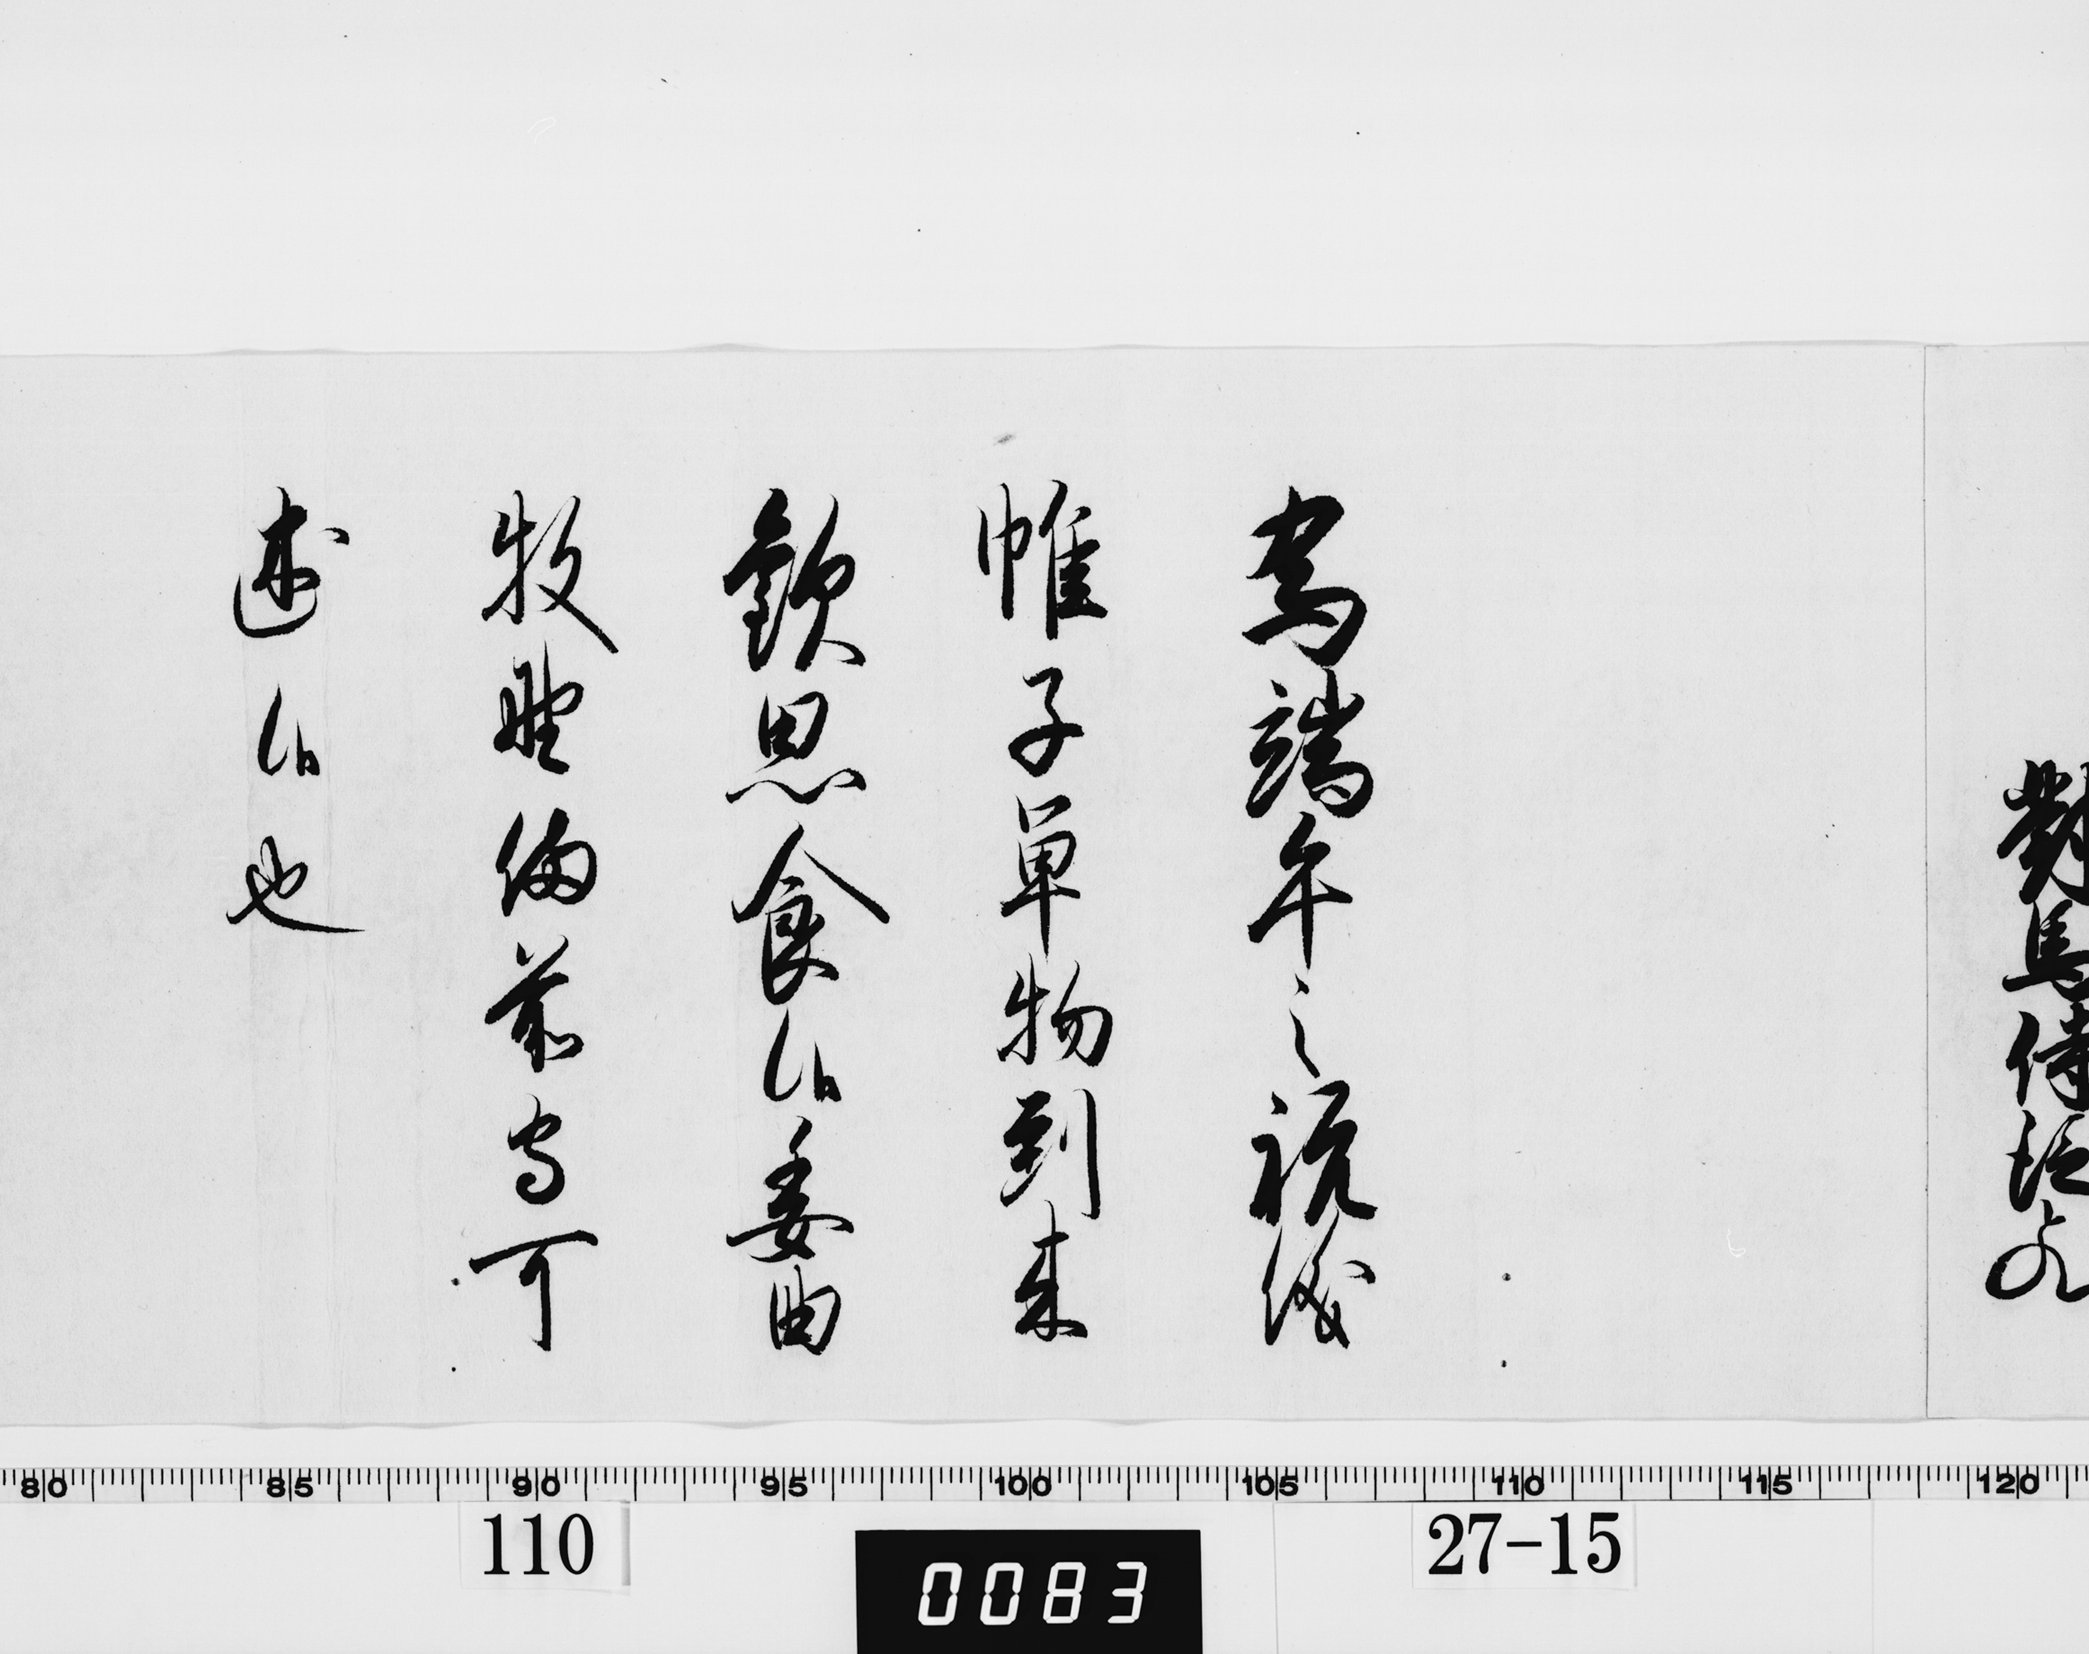 對馬侍従殿
為端午之祝儀
帷子単物到来
歓思食候委曲
牧野備前守可
述候也
80 85 90 95 100 105 110 115 120
110
27-15
0083